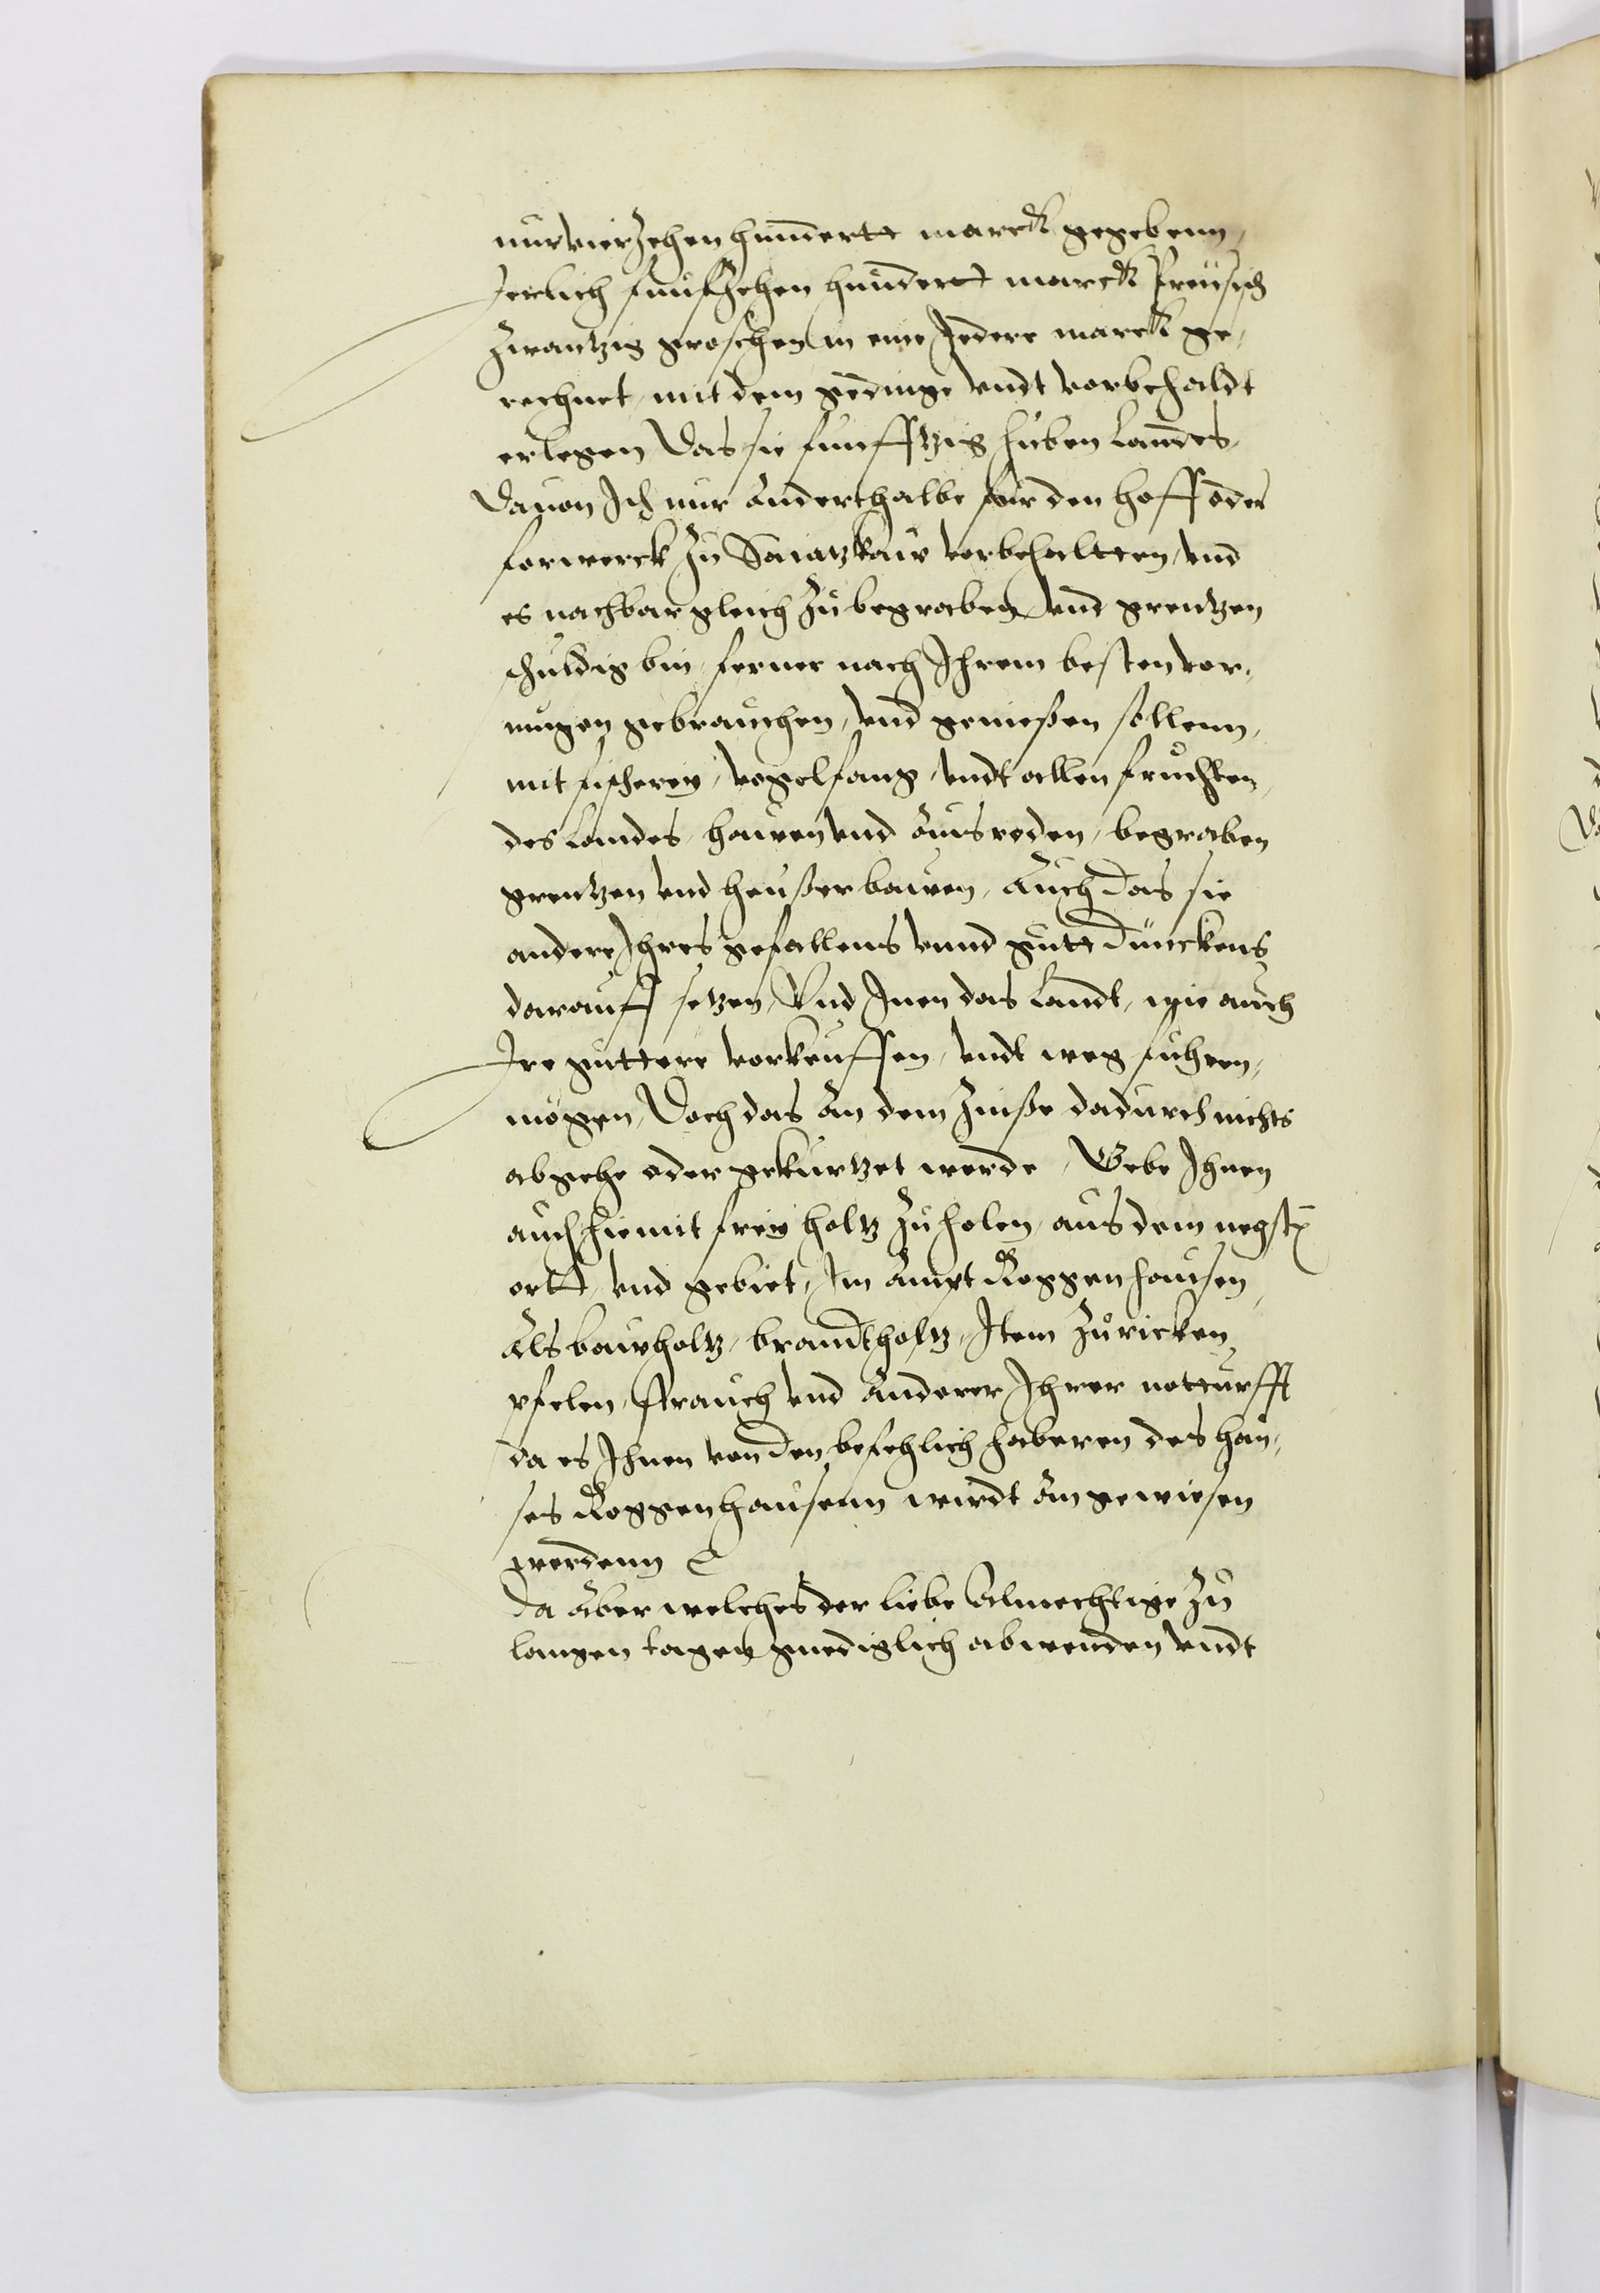 nur vierzehen hundertt marck gegebenn,
Jerlich funfzehen hundertt marck Preüsisch
Zwantzig groschen in eine Jedere marck ge,
rechnet, mit dem gedinge vndt vorbehaldt
erlegen Das sie funfftzig huben Landes,
Dauon Ich nur Anderthalbe für den hoff oder
forwerck zu vorbehaltten, vnd
es nachbar gleich zu begraben vnd grentzen
schuldig bin, ferner nach Ihrem besten vor,
mugen gebrauchen, vnd genießen sollenn,
mit fischerey, vogelfang, vndt allen fruchten,
des Landes, hawen vnd Ausroden, begraben
grentzen vnd heußer bawen, Auch das sie
andere Ihres gefallens vnnd gutt Dünckens
darauff setzen, Vnd Inen das Landt, wie auch
Ire guttere vorkeuffen, vndt weg fuhren,
mögen, Doch das An dem Zinße dadurch nichts
abgehe oder gekurtzet werde, Gebe Ihnen
auch hiemit frey holtz zu holen, aus dem negsten
ortt, vnd gebiet, Im Ampt Roggenhausen,
Als bawholtz, brandtholtz, Item zu ricken,
pfelen, strauch vnd Anderer Ihrer notturfft
da es Ihnen von den befehlich haberen des hau,
ses Roggenhausenn wirdt Angewiesen
werdenn
Da Aber welches der liebe Almechtige zu
langen tagen gnediglich abwenden vndt